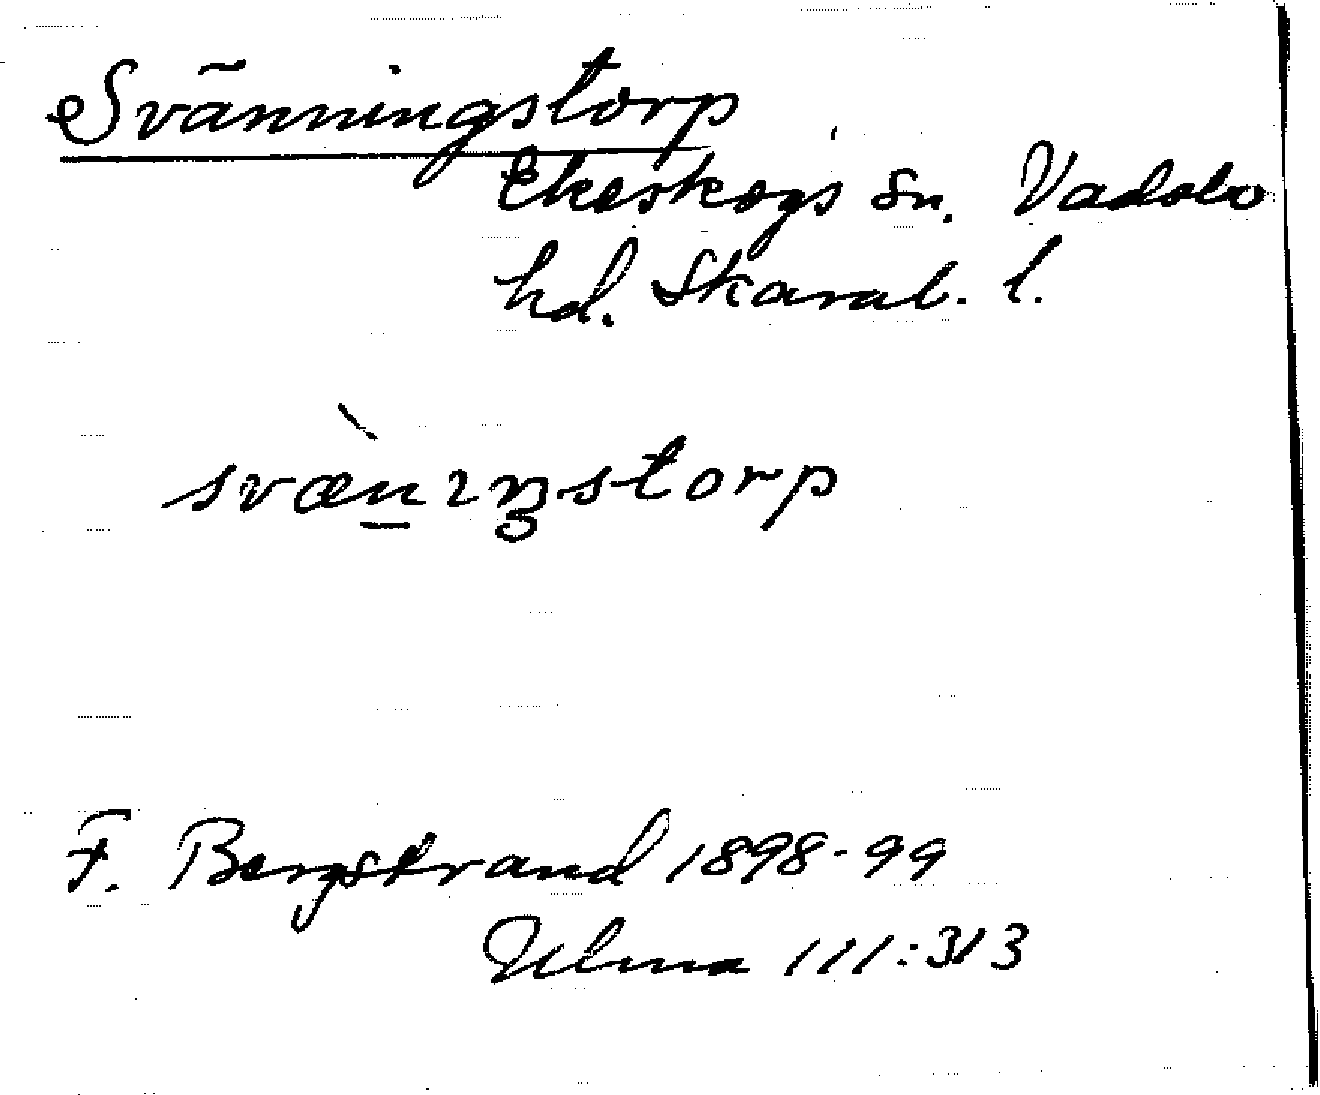 Svänningstorp
Ekeskogs sn. Vadsbo
hd. Skarab. l.
svæ̀n̠ıŋstorp
F. Bergstrand 1898-99
Ulma 111:313